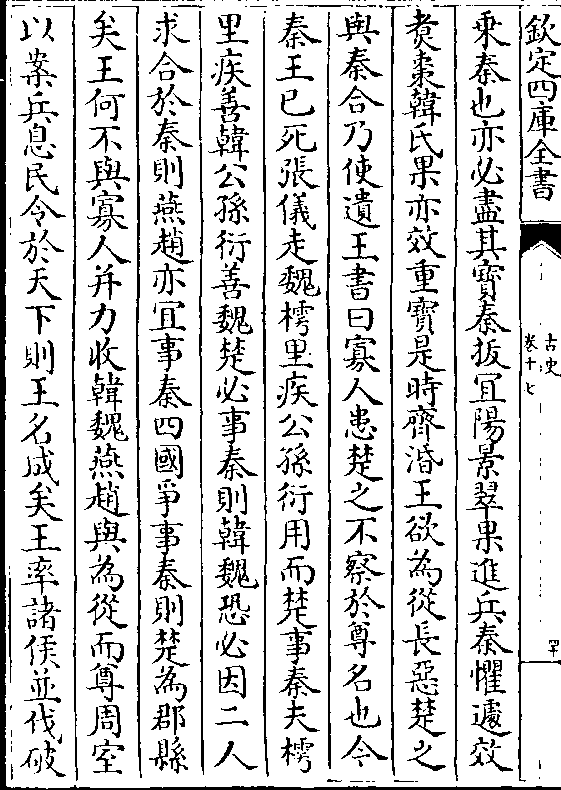 欽定四庫全書
古史
卷十七
乘秦也亦必盡其寶秦拔宜陽景翠果進兵秦懼遽效
煑棗韓氏果亦效重寶是時齊湣王欲為從長惡楚之
與秦合乃使遺王書曰寡人患楚之不察於尊名也今
秦王已死張儀走魏樗里疾公孫衍用而楚事秦夫樗
里疾善韓公孫衍善魏楚必事秦則韓魏恐必因二人
求合於秦則燕趙亦宜事秦四國爭事秦則楚為郡縣
矣王何不與寡人并力收韓魏燕趙與為從而尊周室
以案兵息民令於天下則王名成矣王率諸侯並伐破